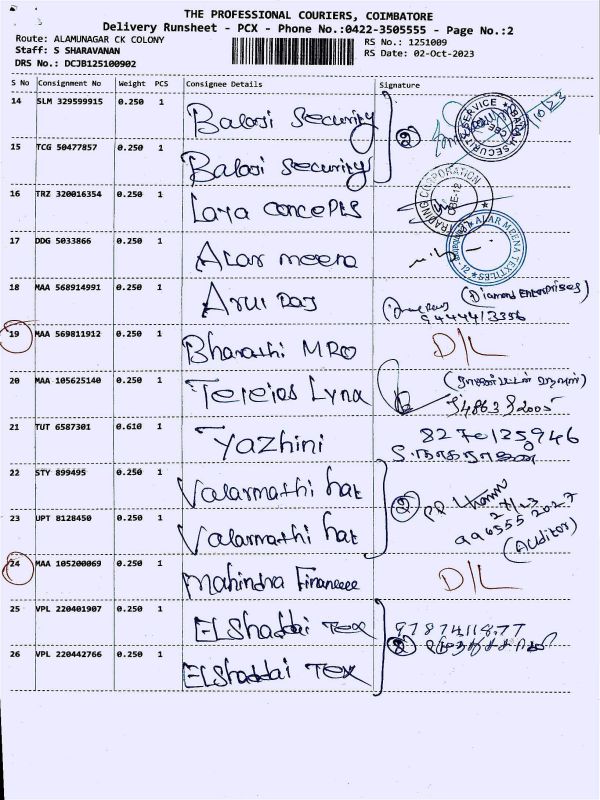 THE PROFESSIONAL COURIERS, COIMBATORE
Delivery Runsheet - PCX - Phone No.:0422-3505555 - Page No.:2
Route: ALAMUNAGAR CK COLONY
RS No.: 1251009
Staff: S SHARAVANAN
RS Date: 02-Oct-2023
DRS No.: DCJB125100902
S No Consignment No Weight PCS Consignee Details Signature
14 SLM 329599915 0.250 1 Balaji Security
15 TCG 50477857 0.250 1 Balaji Security
2
16 TRZ 320016354 0.250 1 Laya Concepts
17 DDG 5033866 0.250 1 Alar meena
ALAR MEENA TEXTILES
18 MAA 568914991 0.250 1 Arul Das
(Diamond Enterprises)
9444413356
19 MAA 569811912 0.250 1 Bharathi MRO D/L
20 MAA 105625140 0.250 1
21 TUT 6587301 0.610 1 Yazhini 8270125946
S. நாகராஜன்
22 STY 899495 0.250 1 Valarmathi
23 UPT 8128450 0.250 1 Valarmathi
2
(Auditor)
24 MAA 105200069 0.250 1 Mahindra Finance D/L
25 VPL 220401907 0.250 1 ELShaddai Tex 9787411877
26 VPL 220442766 0.250 1 ELShaddai Tex